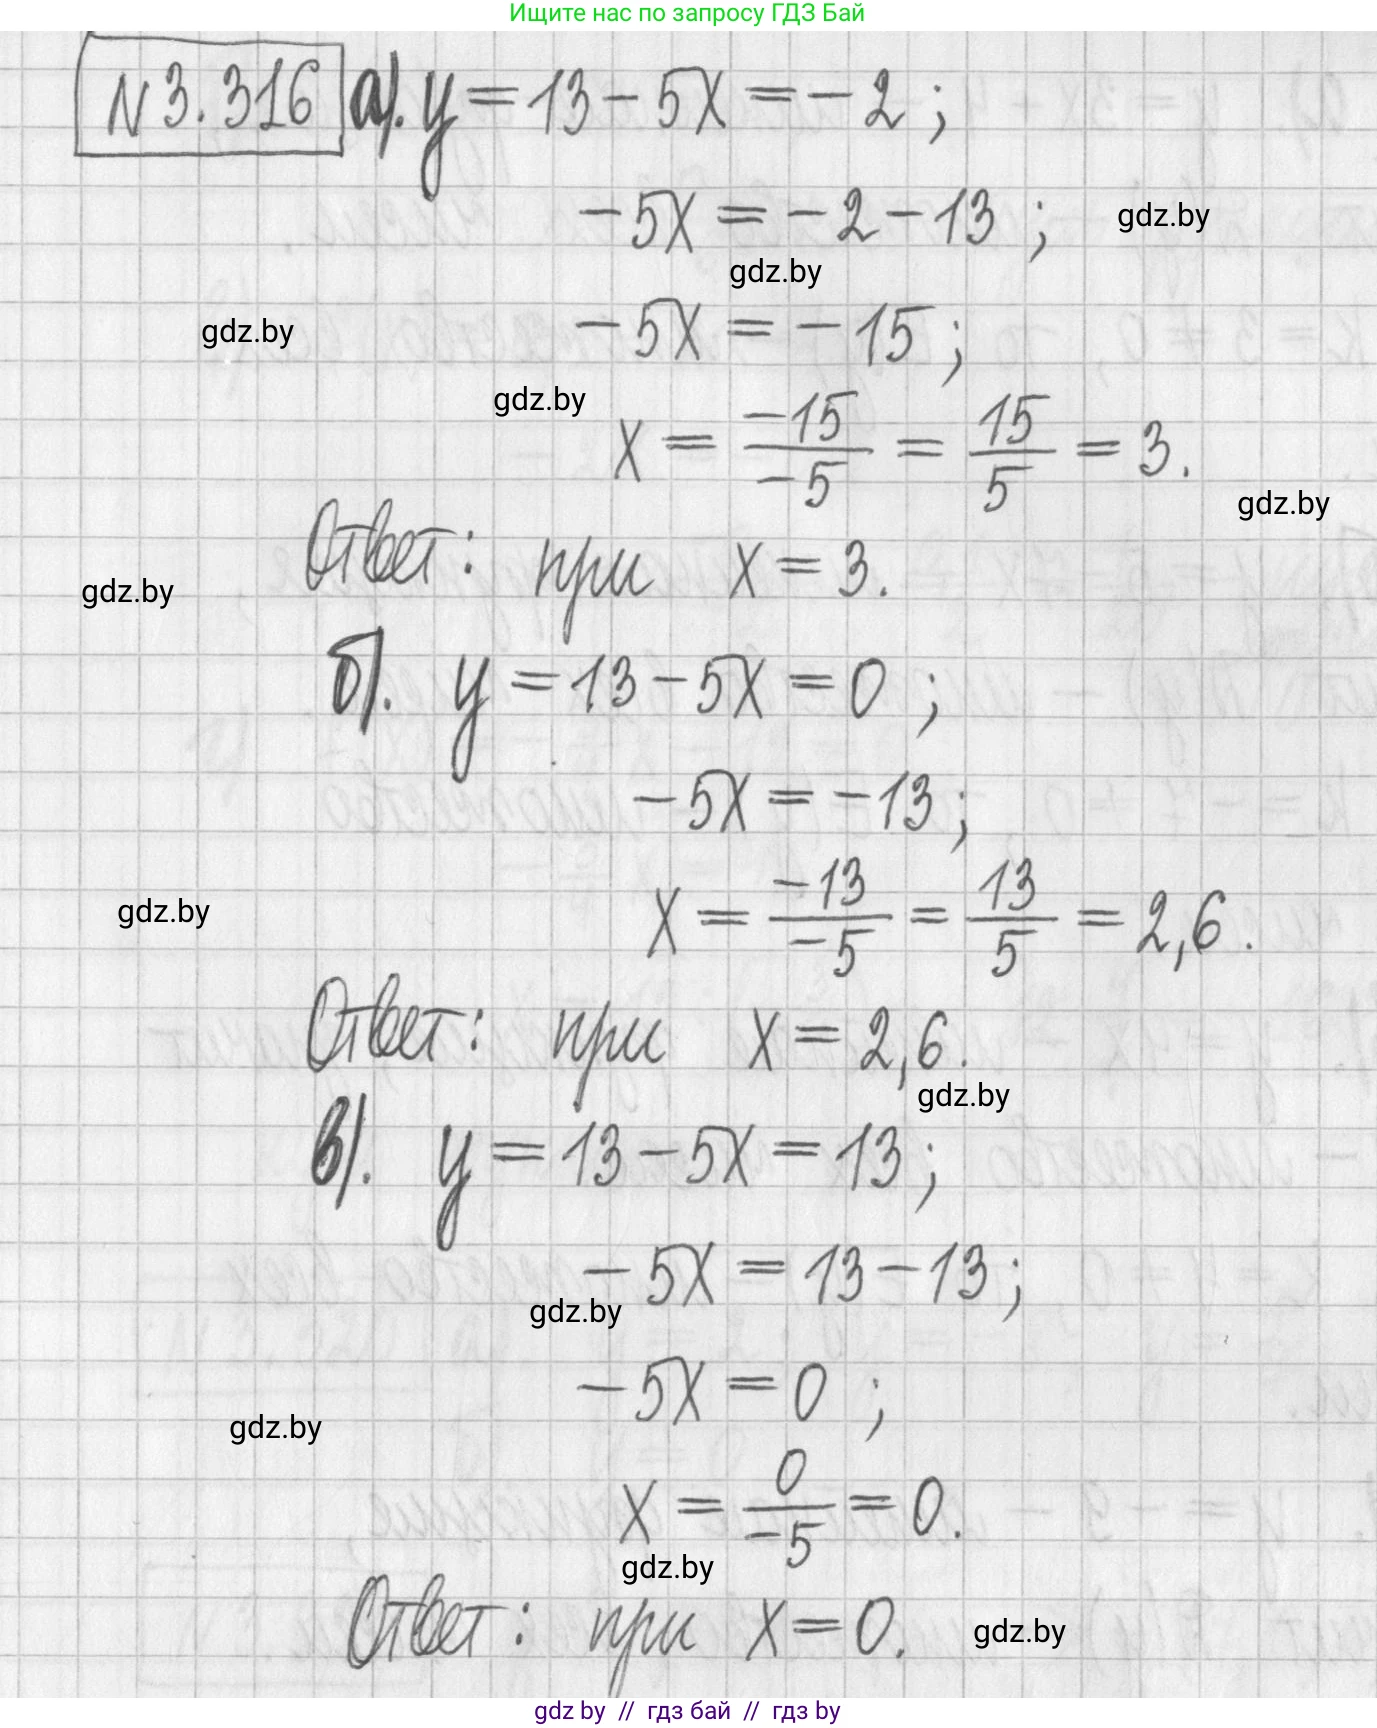 Ищите нас по запросу ГДЗ Бай
N3.316 а). y = 13 - 5x = -2 ;
-5x = -2 - 13 ;
gdz.by
gdz.by
gdz.by
-5x = -15 ;
gdz.by
x = -15/-5 = 15/5 = 3.
gdz.by
Ответ: при x = 3.
gdz.by
б). y = 13 - 5x = 0 ;
-5x = -13 ;
x = -13/-5 = 13/5 = 2,6.
gdz.by
Ответ: при x = 2,6.
gdz.by
в). y = 13 - 5x = 13 ;
-5x = 13 - 13 ;
gdz.by
-5x = 0 ;
gdz.by
x = 0/-5 = 0.
gdz.by
Ответ: при x = 0.
gdz.by
gdz by // гдз бай // гдз by